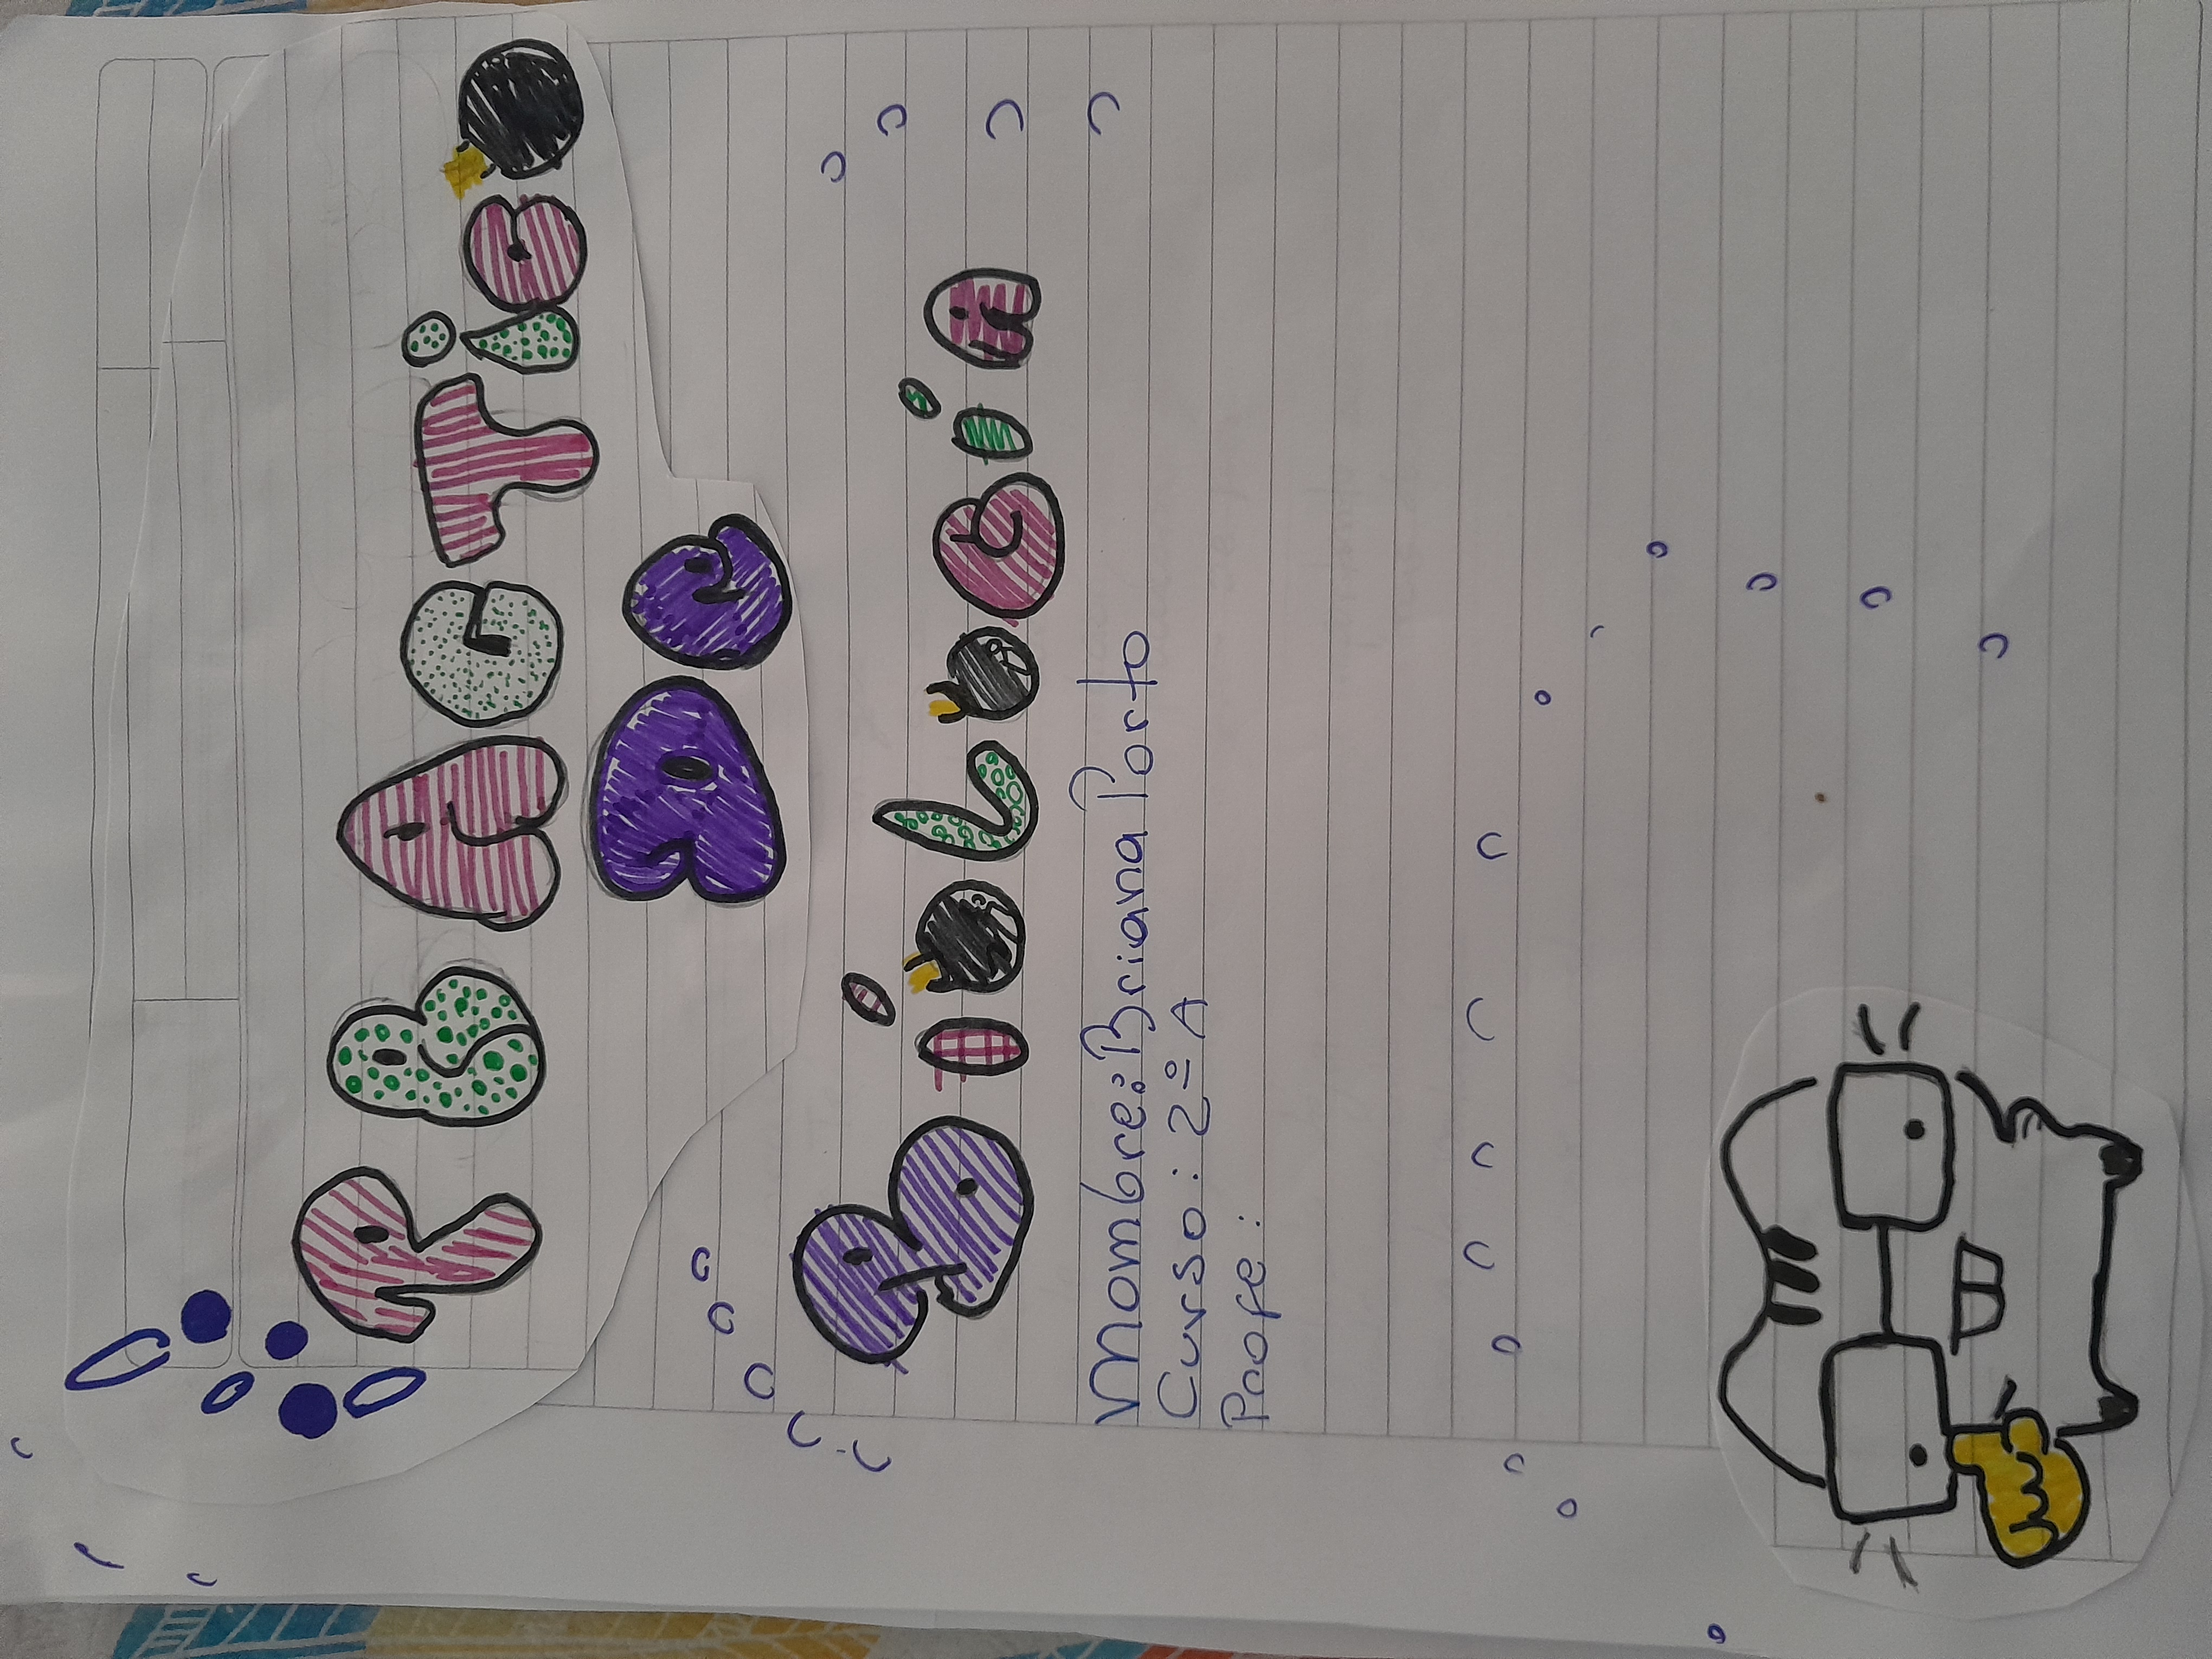 PRACTico
De
BioLoGia
Nombre: Briana Porto
Curso: 2º A
Profe: